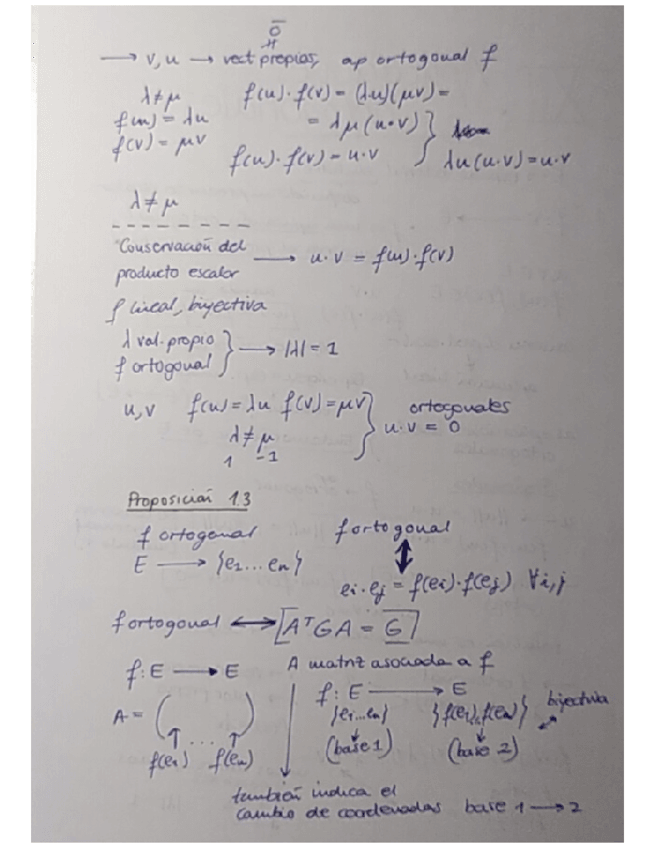 → v, u → vect propios, ap ortogonal f
≠ 0̄
λ≠μ f(u)·f(v) = (λu)(μv) =
f(u) = λu = λμ(u·v)
f(v) = μv f(u)·f(v) = u·v } λμ(u·v) = u·v
λ≠μ
"Conservación del
producto escalar → u·v = f(u)·f(v)
f lineal, biyectiva
λ val. propio
f ortogonal } → |λ| = 1
u, v f(u) = λu f(v) = μv } ortogonales
λ≠μ u·v = 0
1 -1
Proposición 1.3
f ortogonal f ortogonal
E → {e1...en} ↕
ei·ej = f(ei)·f(ej) ∀i,j
f ortogonal ↔ [AᵀGA = G]
f: E → E A matriz asociada a f
A = ( ... ) f: E → E
{ei...en} {f(ei)..f(en)} biyectiva
f(e1) f(en) (base 1) (base 2)
también indica el
cambio de coordenadas base 1 → 2